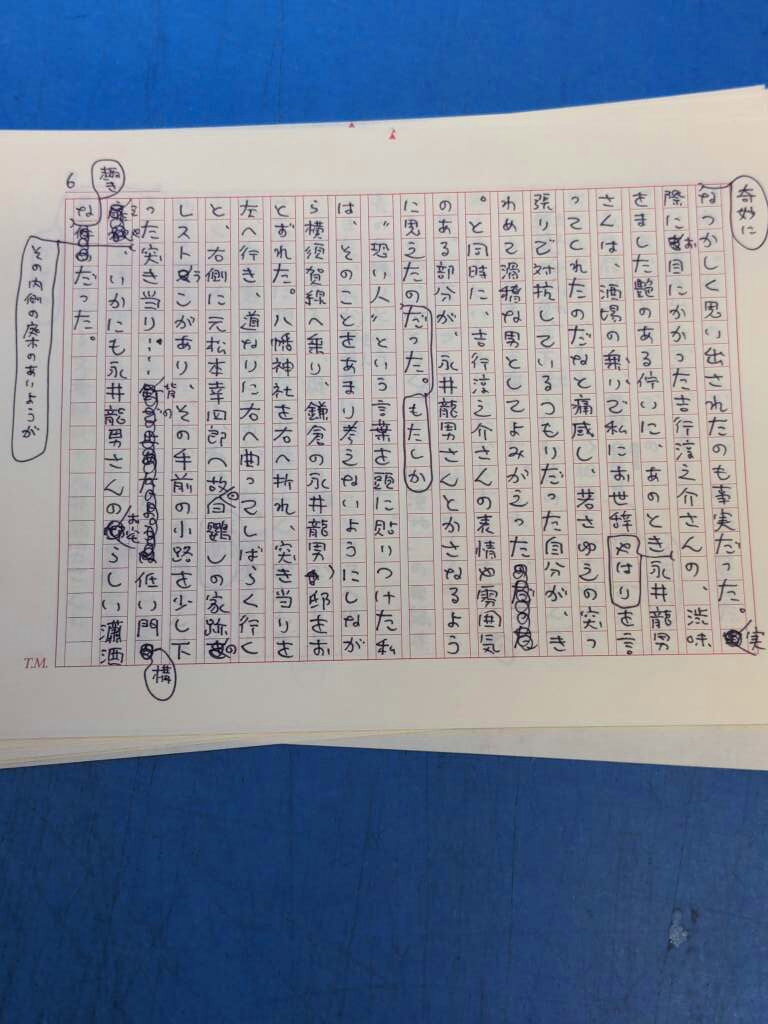 6
奇妙に
なつかしく思い出されたのも事実だった。実
際にお目にかかった吉行淳之介さんの、渋味
をました艶のある佇いに、あのとき永井龍男
さんは、酒場の乗りで私にお世辞やはりを言
ってくれたのだなと痛感し、若さゆえの突っ
張りで対抗しているつもりだった自分が、き
わめて滑稽な男としてよみがえった
。と同時に、吉行淳之介さんの表情や雰囲気
のある部分が、永井龍男さんとかさなるよう
に思えたのだった。もたしか
“恐い人”という言葉を頭に貼りつけた私
は、そのことをあまり考えないようにしなが
ら横須賀線へ乗り、鎌倉の永井龍男邸をお
とずれた。八幡神社を右へ折れ、突き当りを
左へ行き、道なりに右へ曲ってしばらく行く
と、右側に元松本幸四郎の故白鸚の家跡の
レストランがあり、その手前の小路を少し下
った突き当り……背の低い門構
え、いかにも永井龍男さんのお宅らしい瀟洒
な趣きだった。
その内側の庭木のあいようが
T.M.